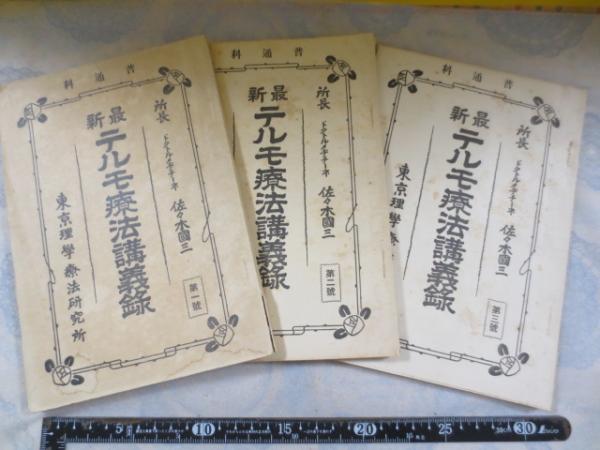 科通普
所長 ドクトルメヂチーネ 佐々木國三
新最
テルモ療法講義録
東京理學療法研究所
第一號
科通普
所長 ドクトルメヂチーネ 佐々木國三
新最
テルモ療法講義録
第二號
科通普
所長 ドクトルメヂチーネ 佐々木國三
新最
テルモ療法講義録
東京理學
第三號
5 10 15 20 25 30